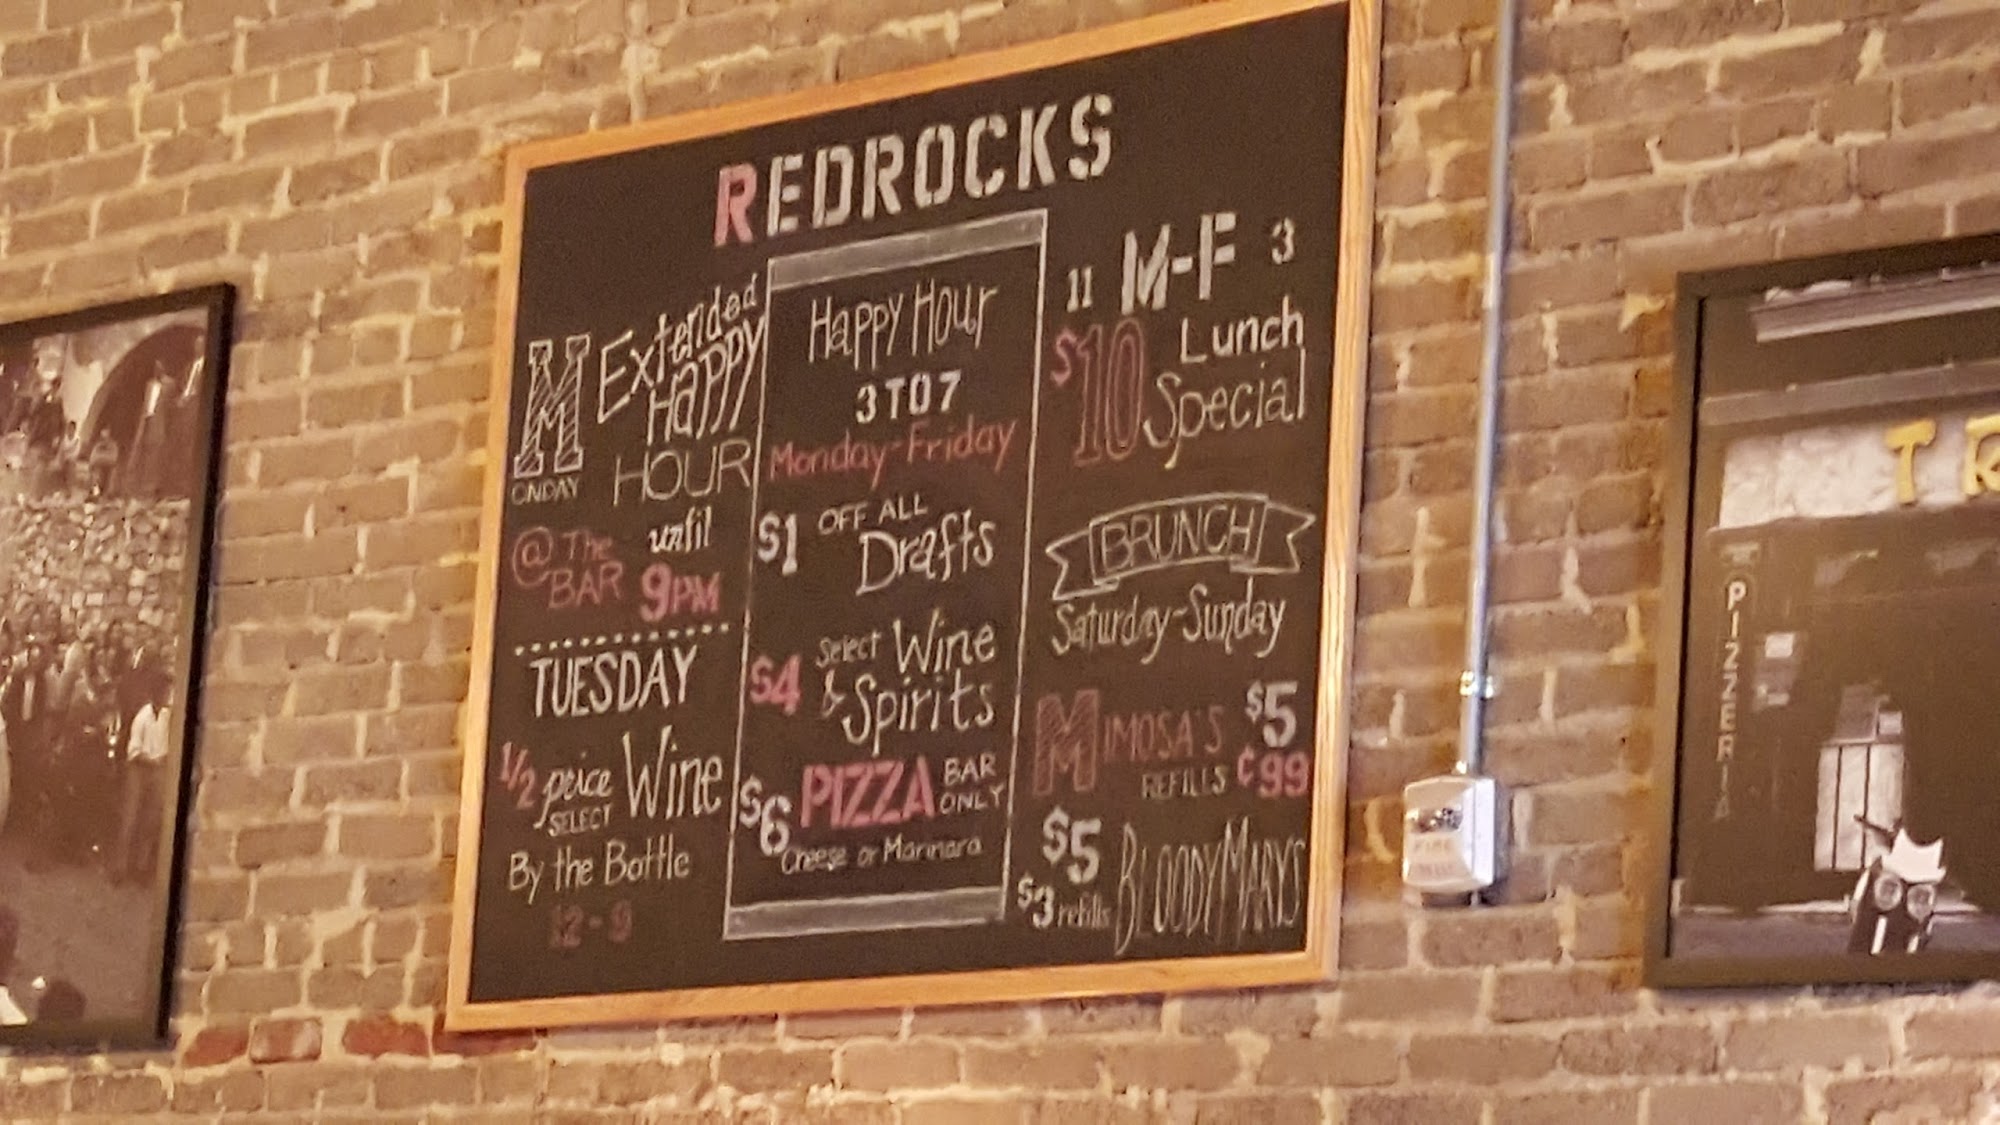 REDROCKS
MONDAY
Extended
Happy
HOUR
@ The
BAR
until
9PM
TUESDAY
1/2 price Wine
SELECT
By the Bottle
12-9
Happy Hour
3 TO 7
Monday-Friday
$1 OFF ALL
Drafts
$4 Select Wine
& Spirits
$6 PIZZA BAR
ONLY
Cheese or Marinara
11 M-F 3
$10 Lunch
Special
BRUNCH
Saturday-Sunday
MIMOSA'S $5
REFILLS ¢99
$5
$3 refills
BLOODY MARYS
TR
PIZZERIA
FIRE